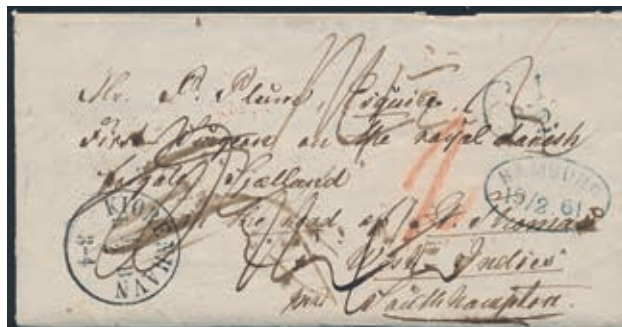 Mr. P. Plum, Esquire.
First Surgeon on the royal danish
frigate Sjælland
at the road of St. Thomas
West Indies
Southhampton.
KIØBENHAVN
3-4
HAMBURG
19/2 61